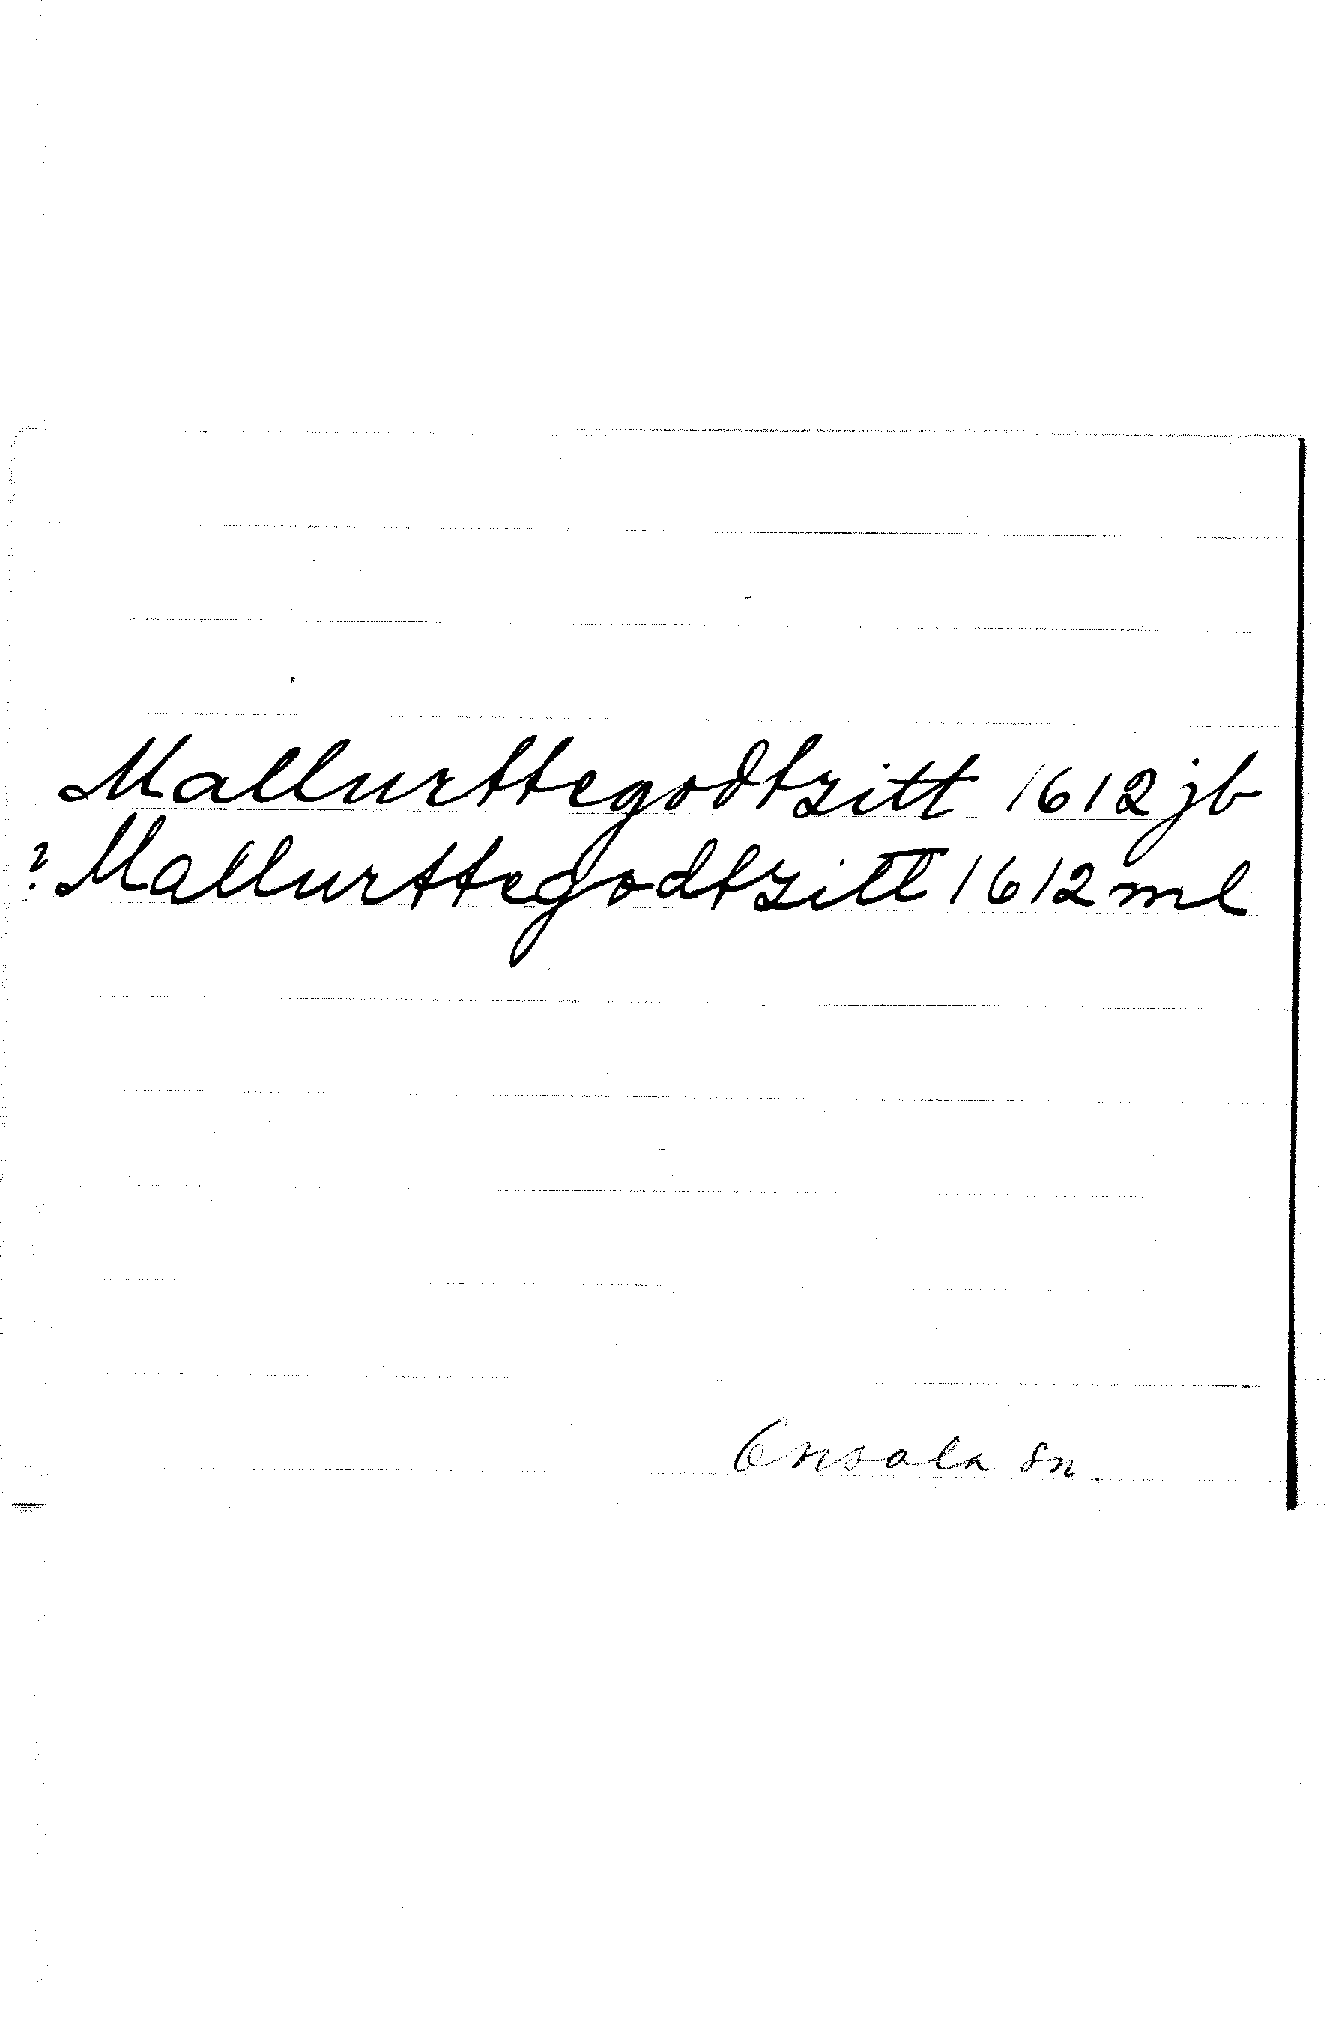 Mallurttegodtzitt 1612 jb
? Mallurttegodtzitt 1612 ml
Onsala sn.